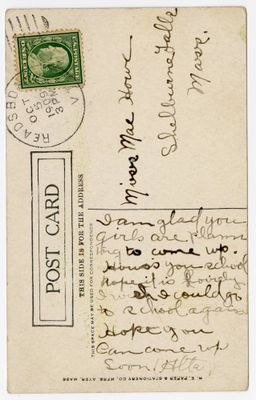 READSBO
OCT
5
1909
3 PM
V
Miss Mae Howe
Shelburne Falls
Mass.
POST CARD
THIS SIDE IS FOR THE ADDRESS
THIS SPACE MAY BE USED FOR CORRESPONDENCE
I am glad you
girls are plann
ing to come up.
Hows your school
hope it is lovely
I wish I could go
to school again
Hope you
Can come up
Soon. Alta
PAPER & STATIONERY CO. MFRS. AYER, MASS